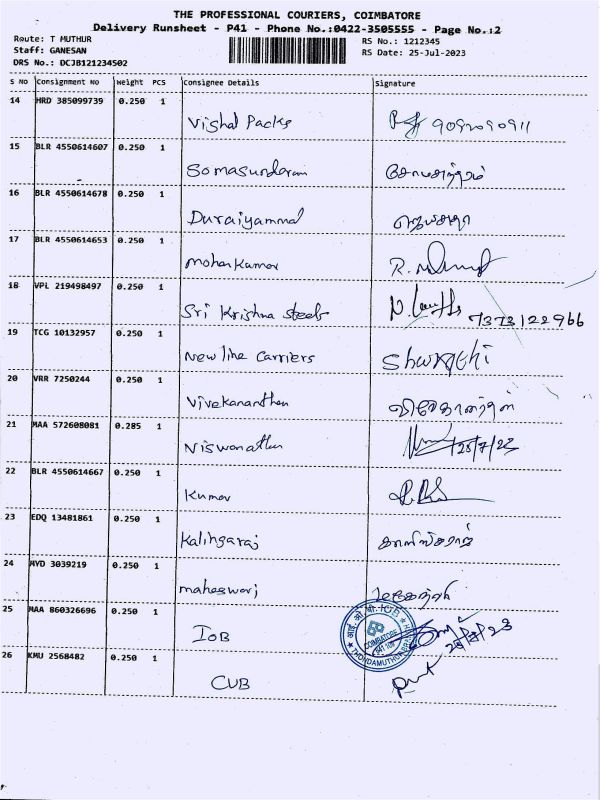 THE PROFESSIONAL COURIERS, COIMBATORE
Delivery Runsheet - P41 - Phone No.:0422-3505555 - Page No.:2
Route: T MUTHUR
RS No.: 1212345
Staff: GANESAN
RS Date: 25-Jul-2023
DRS No.: DCJB121234502
S NO Consignment No Weight PCS Consignee Details Signature
14 HRD 385099739 0.250 1
Vishal Packs 9092090911
15 BLR 4550614607 0.250 1
Somasundaram சோமசுந்தரம்
16 BLR 4550614678 0.250 1
Duraiyammal
17 BLR 4550614653 0.250 1
mohankumar
18 VPL 219498497 0.250 1
Sri Krishna Steels 7373122966
19 TCG 10132957 0.250 1
New line Carriers
20 VRR 7250244 0.250 1
Vivekananthan
21 MAA 572608081 0.285 1
Viswanathan 25/7/23
22 BLR 4550614667 0.250 1
Kumar
23 EDQ 13481861 0.250 1
Kalingaraj
24 MYD 3039219 0.250 1
maheswari
25 MAA 860326696 0.250 1
IOB 25/7/23
26 KMU 2568482 0.250 1
CUB